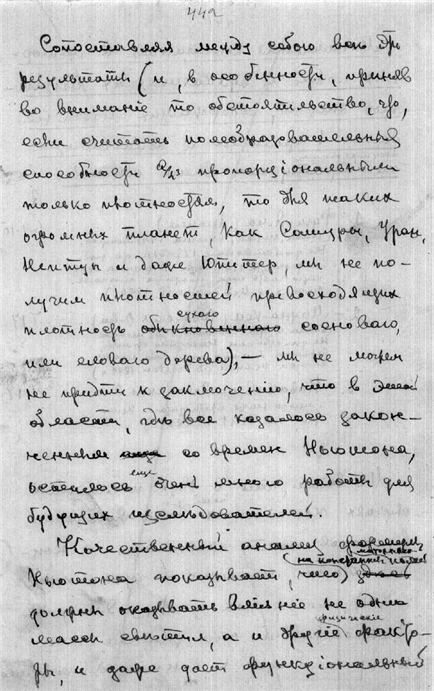 442
Сопоставляя между собою все эти
результаты (и, в особенности, приняв
во вниманіе то обстоятельство, что,
если считать полеобразовательныя
способности пропорціональными
только плотностям, то для таких
огромных планет, как Сатурн, Уран,
Нептун и даже Юпитер, мы не по-
лучим плотностей превосходящих
плотность сухого сосноваго,
или еловаго дерева), — мы не можем
не придти к заключенію, что в этой
области, где все казалось закон-
ченным со времен Ньютона,
осталось еще очень много работы для
будущих изследователей.
Качественный анализ формулы
Ньютона показывает, что
должны оказывать вліяніе не одни
массы светил, а и другіе физическіе факто-
ры, и даже дает функціональный